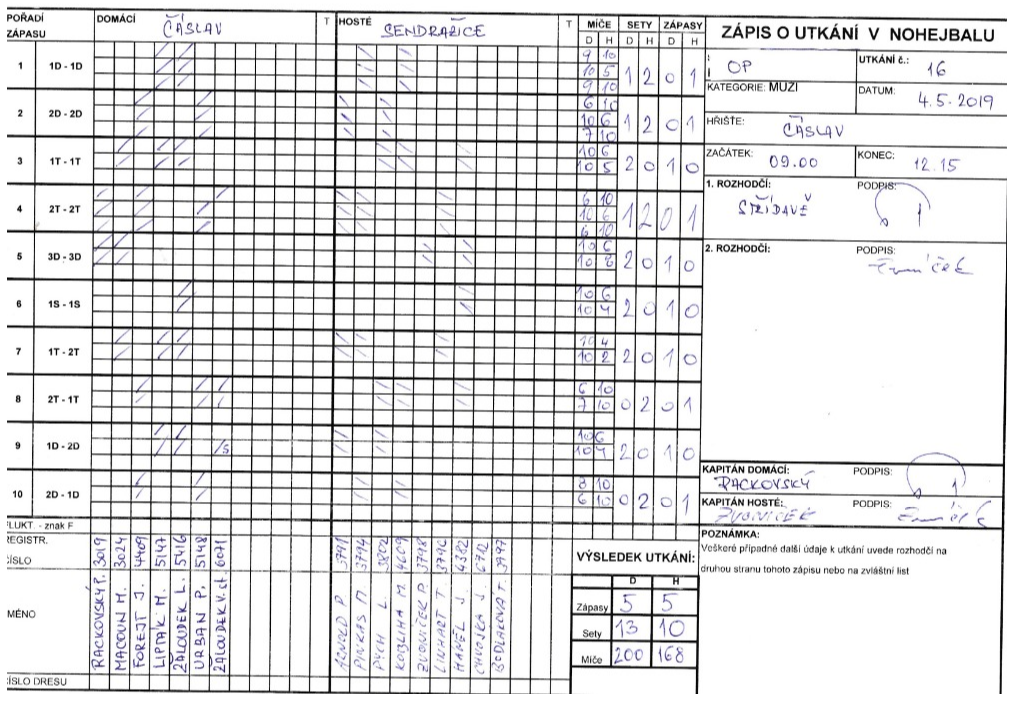 POŘADÍ ZÁPASU DOMÁCÍ ČÁSLAV T HOSTÉ SENDRAŽICE T MÍČE SETY ZÁPASY
D H D H D H
1 1D - 1D 9 10 1 2 0 1
10 5
9 10
2 2D - 2D 6 10 1 2 0 1
10 6
7 10
3 1T - 1T 10 6 2 0 1 0
10 5
4 2T - 2T 6 10 1 2 0 1
10 6
6 10
5 3D - 3D 10 6 2 0 1 0
10 8
6 1S - 1S 10 6 2 0 1 0
10 4
7 1T - 2T 10 4 2 0 1 0
10 2
8 2T - 1T 6 10 0 2 0 1
7 10
9 1D - 2D 10 6 2 0 1 0
10 4
/S
10 2D - 1D 8 10 0 2 0 1
6 10
FLUKT. - znak F
REGISTR. ČÍSLO
JMÉNO
ČÍSLO DRESU
RACKOVSKÝ P. 3019
MACOUN M. 3024
FOREJT J. 4409
LIPTÁK M. 5147
ŽALOUDEK L. 5416
URBAN P. 5148
ŽALOUDEK V. st. 6071
ARNOLD P. 3791
PINKAS M. 3794
PYCH L. 3802
KOZLIHA M. 4609
ZVONIČEK P. 3798
LINHART T. 3790
HANĚL J. 4382
J. 6712
BODLÁKOVÁ T. 3797
VÝSLEDEK UTKÁNÍ:
D H
Zápasy 5 5
Sety 13 10
Míče 200 168
ZÁPIS O UTKÁNÍ V NOHEJBALU
OP
UTKÁNÍ č.: 16
KATEGORIE: MUŽI
DATUM: 4.5.2019
HŘIŠTĚ: ČÁSLAV
ZAČÁTEK: 09.00
KONEC: 12.15
1. ROZHODČÍ: STŘÍDAVĚ PODPIS:
2. ROZHODČÍ: PODPIS:
KAPITÁN DOMÁCÍ: RACKOVSKÝ PODPIS:
KAPITÁN HOSTÉ: ZVONIČEK PODPIS:
POZNÁMKA:
Veškeré případné další údaje k utkání uvede rozhodčí na
druhou stranu tohoto zápisu nebo na zvláštní list